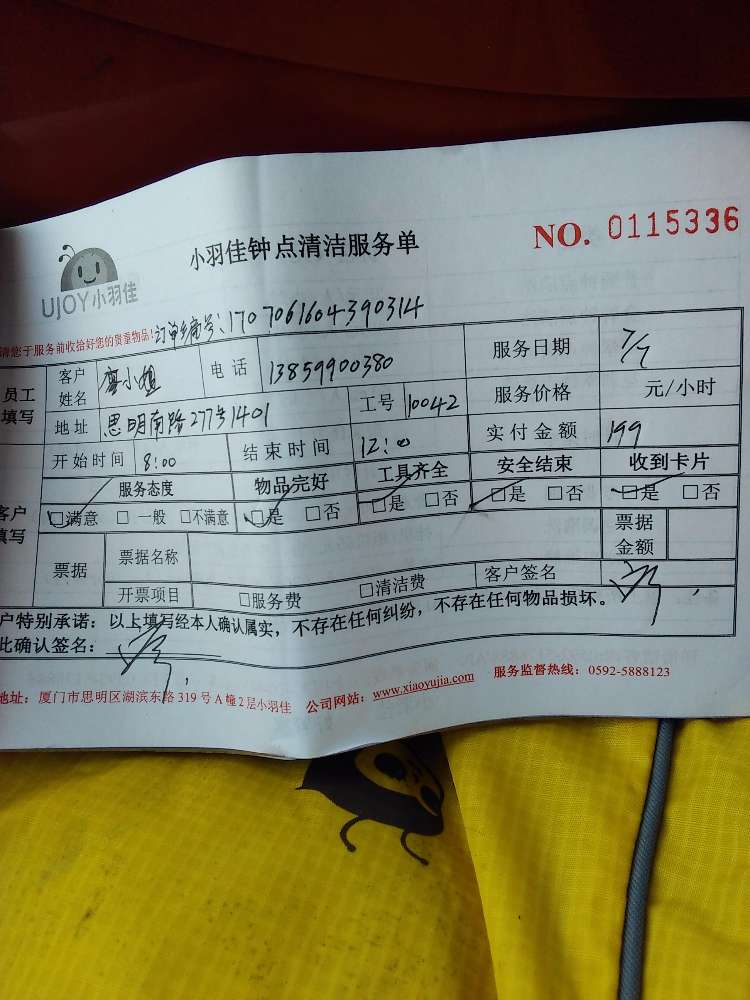 小羽佳钟点清洁服务单
NO. 0115336
UJOY小羽佳
请您于服务前收拾好您的贵重物品!订单编号:1707061604390314
员工填写 客户姓名 廖小姐 电话 13859900380 服务日期 7/7
地址 思明南路277号1401 工号 10042 服务价格 元/小时
开始时间 8:00 结束时间 12:00 实付金额 199
客户填写 服务态度 物品完好 工具齐全 安全结束 收到卡片
☑满意 □一般 □不满意 ☑是 □否 ☑是 □否 ☑是 □否 ☑是 □否
票据 票据名称 票据金额
开票项目 □服务费 □清洁费 客户签名
户特别承诺:以上填写经本人确认属实,不存在任何纠纷,不存在任何物品损坏。
此确认签名:
地址:厦门市思明区湖滨东路319号A幢2层小羽佳 公司网站:www.xiaoyujia.com 服务监督热线:0592-5888123